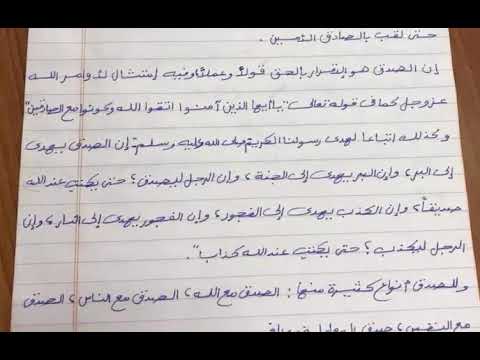 حتى لقب بالصادق الأمين .
إن الصدق هو الإقرار بالحق قولاً وعملاً وفيه إمتثال لأوامر الله
عز وجل كما في قوله تعالى "يا أيها الذين آمنوا اتقوا الله وكونوا مع الصادقين"
وكذلك اتباعا لهدى رسولنا الكريم صلى الله عليه وسلم "إن الصدق يهدى
إلى البر ، وإن البر يهدى إلى الجنة ، وإن الرجل ليصدق ؛ حتى يكتب عند الله
صديقاً ، وإن الكذب يهدى إلى الفجور ، وإن الفجور يهدى إلى النار ، وإن
الرجل ليكذب ؛ حتى يكتب عند الله كذابا".
وللصدق أنواع كثيرة منها : الصدق مع الله ، الصدق مع الناس ، الصدق
مع النفس ،